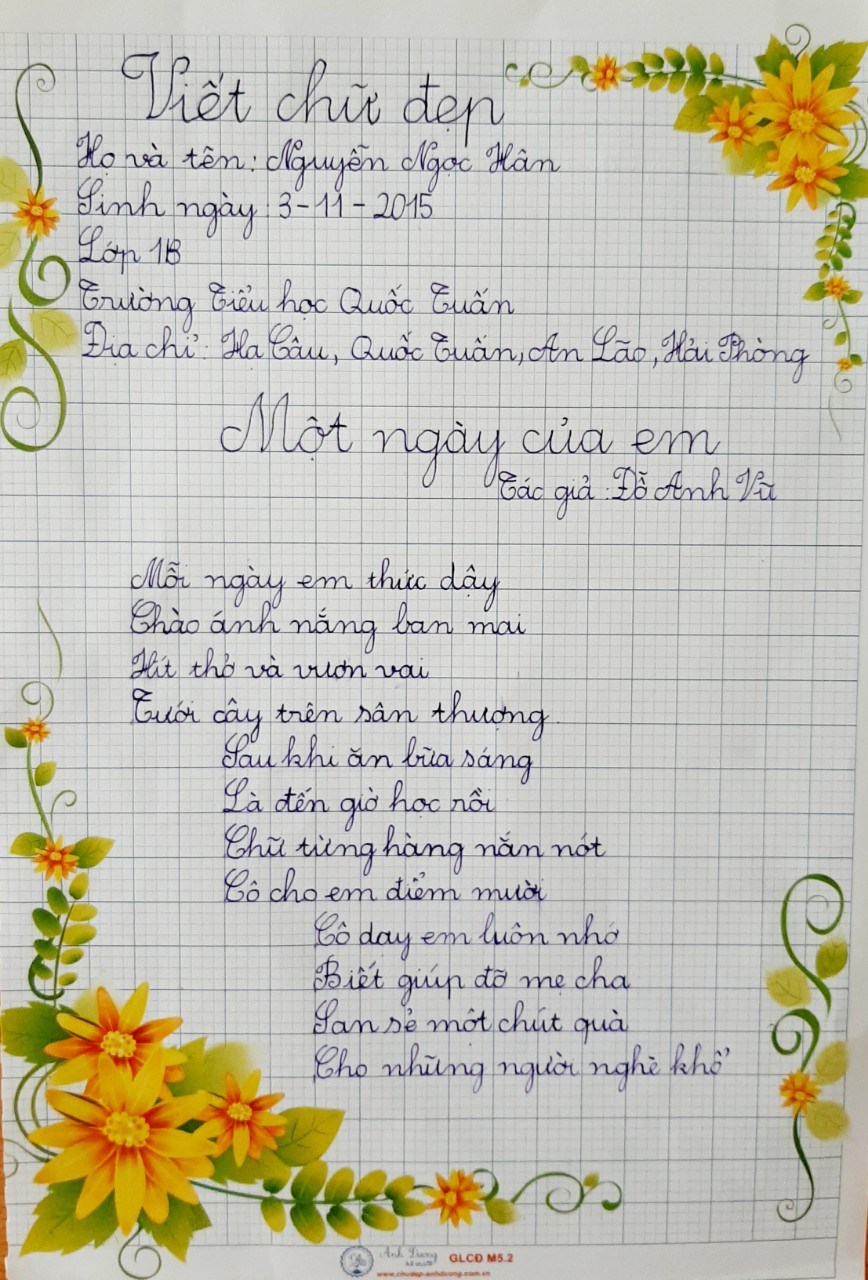 Viết chữ đẹp
Họ và tên: Nguyễn Ngọc Hân
Sinh ngày: 3-11-2015
Lớp 1B
Trường Tiểu học Quốc Tuấn
Địa chỉ: Hạ Câu, Quốc Tuấn, An Lão, Hải Phòng
Một ngày của em
Tác giả: Đỗ Anh Vũ
Mỗi ngày em thức dậy
Chào ánh nắng ban mai
Hít thở và vươn vai
Tưới cây trên sân thượng.
Sau khi ăn bữa sáng
Là đến giờ học rồi
Chữ từng hàng nắn nót
Cô cho em điểm mười
Cô day em luôn nhớ
Biết giúp đỡ mẹ cha
San sẻ một chút quà
Cho những người nghè khổ
Anh Dương
GLCĐ M5.2
www.chudep-anhduong.com.vn